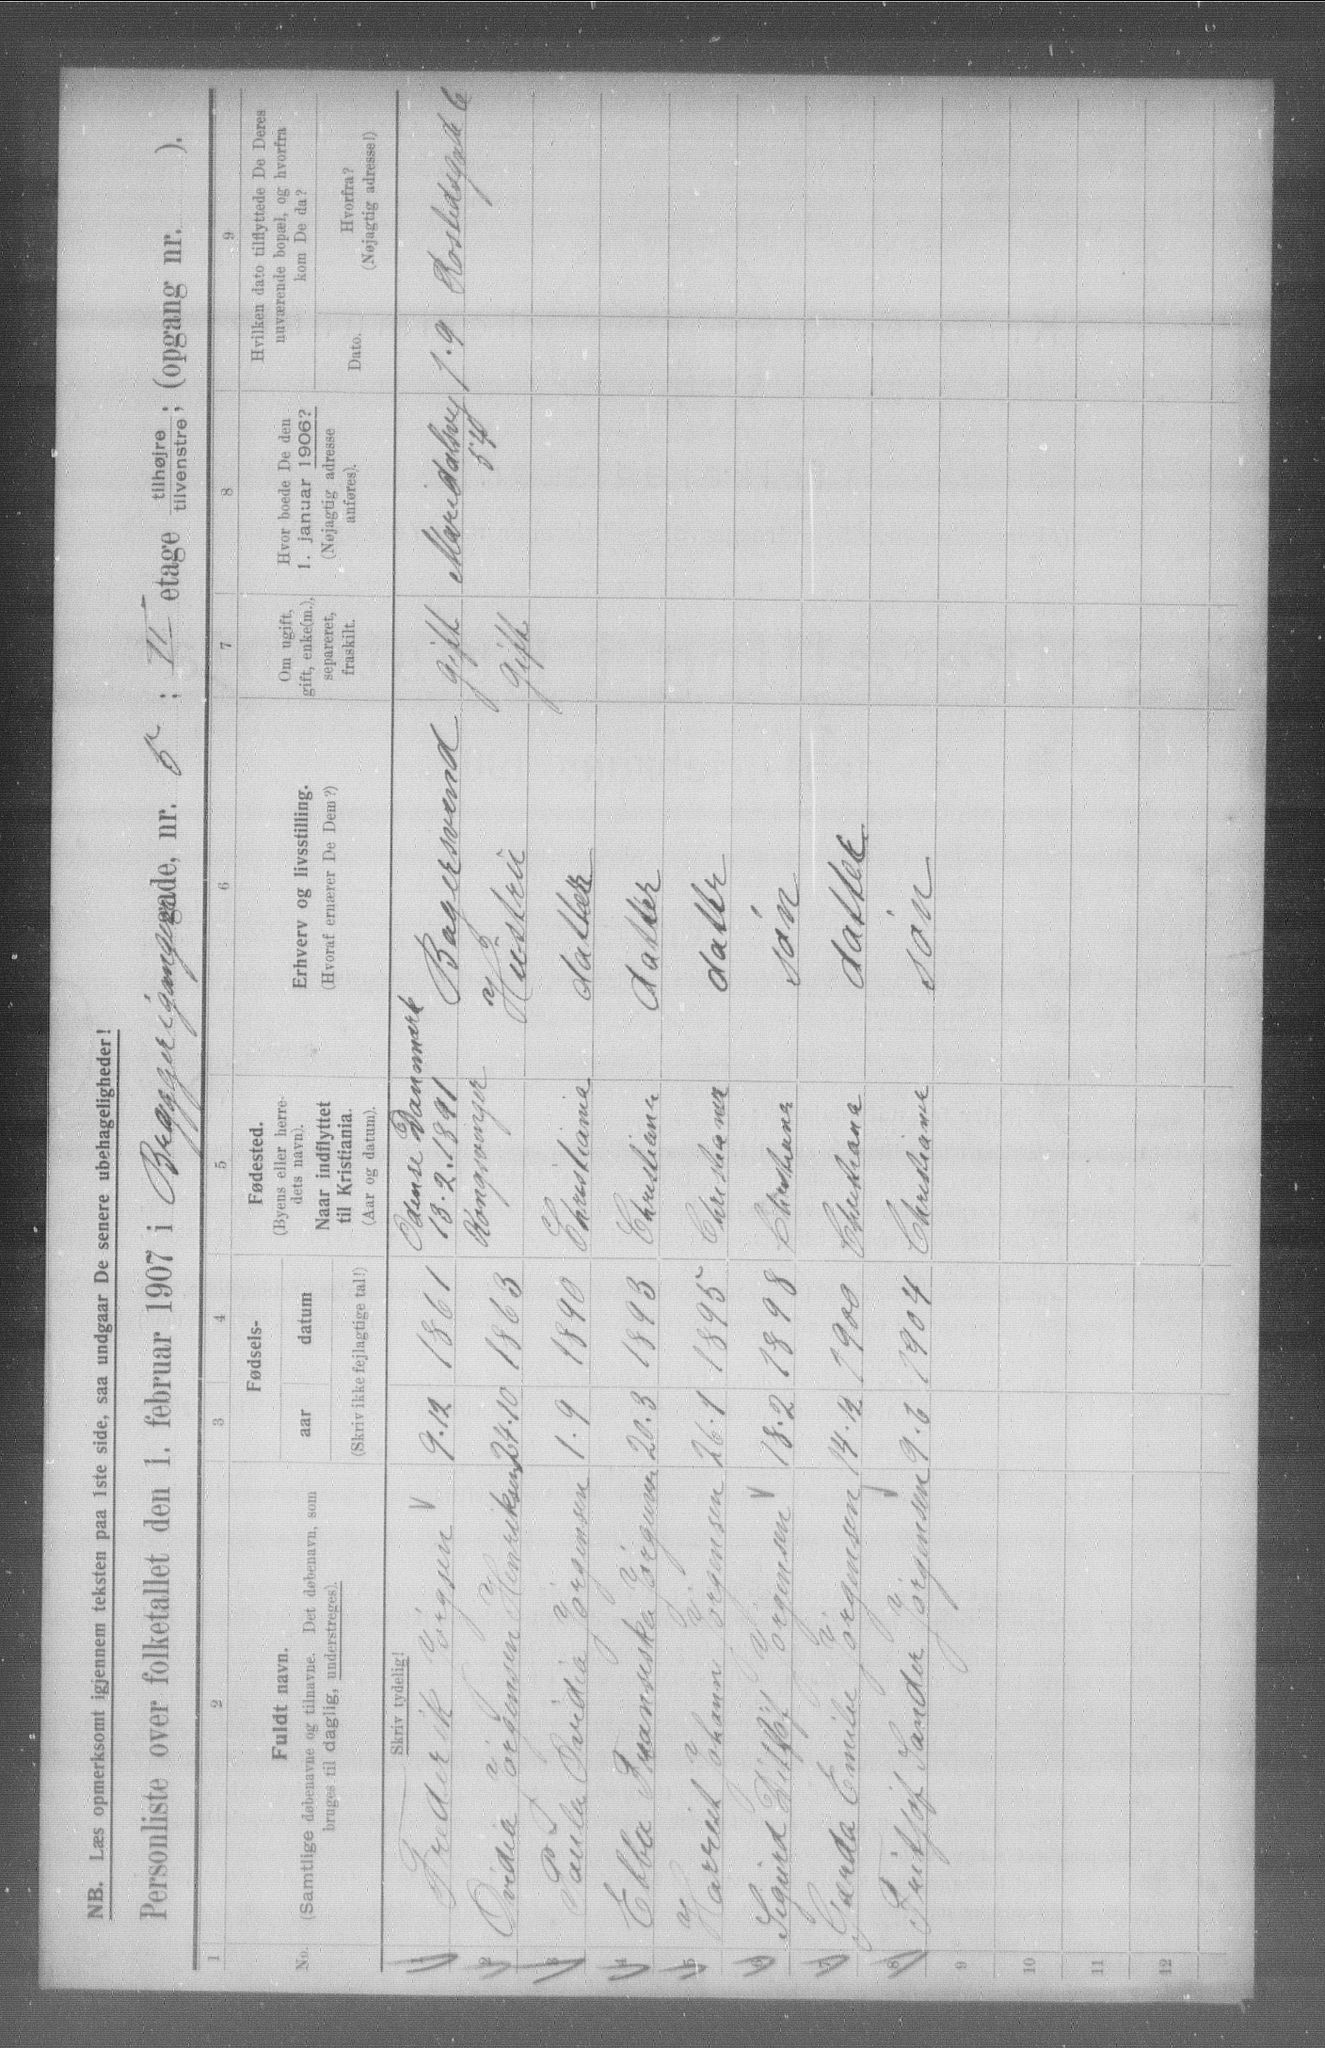 NB. Læs opmerksomt igjennem teksten paa 1ste side, saa undgaar De senere ubehageligheder!
Personliste over folketallet den 1. februar 1907 i gade, nr. 5 ; II etage tilhøjre tilvenstre; (opgang nr. ).
1 2 3 4 5 6 7 8 9
No. Fuldt navn.
(Samtlige døbenavne og tilnavne. Det døbenavn, som
bruges til daglig, understreges).
Skriv tydelig!
Fødsels-
aar datum
(Skriv ikke fejlagtige tal!)
Fødested.
(Byens eller herre-
dets navn).
Naar indflyttet
til Kristiania.
(Aar og datum).
Erhverv og livsstilling.
(Hvoraf ernærer De Dem?)
Om ugift,
gift, enke(m.),
separeret,
fraskilt.
Hvor boede De den
1. januar 1906?
(Nøjagtig adresse
anføres).
Hvilken dato tilflyttede De Deres
nuværende bopæl, og hvorfra
kom De da?
Dato. Hvorfra?
(Nøjagtig adresse!)
1 Frederik 9.12 1861 Odense Danmark 18.2.1891 Bagersvend gift Maridalsvej 54 1.9
2 Ovidia Jörgensen Henriksen 24.10 1863 Kongsvinger Hustru gift
3 Paula Ovidia Jörgensen 1.9 1890 Christiania datter
4 Ebba Franseska Jörgensen 20.3 1893 Christiania datter
5 Harriet Johanne Jörgensen 26.1 1895 Christiania datter
6 Sigurd Jörgensen 18.2 1898 Christiania sön
7 Gerda Emilie Jörgensen 14.12 1900 Christiania datter
8 Fritjof Sander Jörgensen 9.6 1904 Christiania sön
9
10
11
12